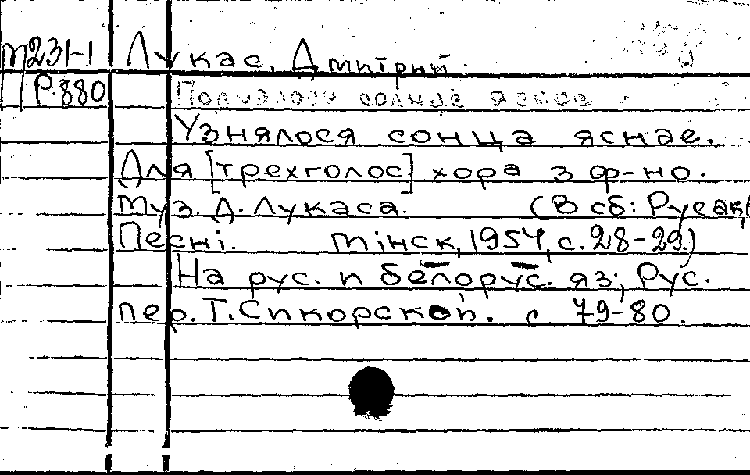 М231-1 Лукас, Дмитрий.
Р.880 солнце ясное
Узнялося сонца яснае.
Для [трехголос] хора з ф-но.
Муз. Д. Лукаса. (В сб: Русак,
Песні. Мінск, 1957, с. 28-29.)
На рус. и белорус. яз; Рус.
пер. Т. Сикорской. с 79-80.